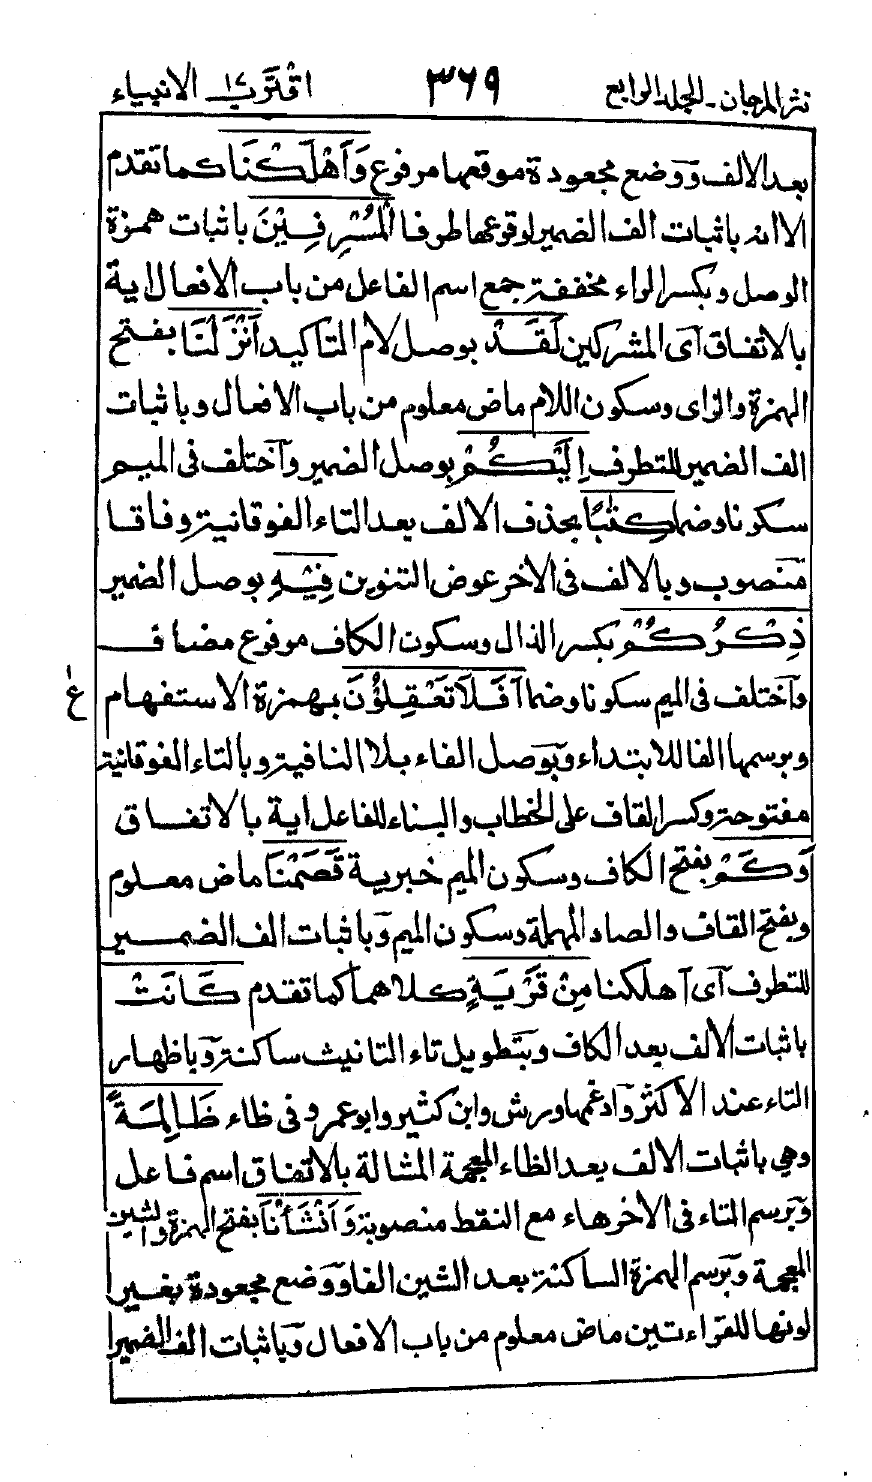 نثر المرجان ـ الجلد الرابع ٣٦٩ اقْتَرَبَ ١٧ الانبياء
بعد الالف ووضع مجعودة موقعها مرفوع وَأَهْلَكْنَا كما تقدم
الا انه باثبات الف الضمير لوقوعها طرفا الْمُسْرِفِيْنَ باثبات همزة
الوصل وبكسر الراء مخففة جمع اسم الفاعل من باب الافعال اية
بالاتفاق اى المشركين لَقَدْ بوصل لام التاكيد اَنْزَلْنَا بفتح
الهمزة والزاى وسكون اللام ماض معلوم من باب الافعال وباثبات
الف الضمير للتطرف اِلَيْكُمْ بوصل الضمير واختلف فى الميم
سكونا وضما كِتٰبًا بحذف الالف بعد التاء الفوقانية وفاقا
منصوب وبالالف فى الاخر عوض التنوين فِيْهِ بوصل الضمير
ذِكْرُكُمْ بكسر الذال وسكون الكاف مرفوع مضاف
واختلف فى الميم سكونا وضما اَفَلَا تَعْقِلُوْنَ بهمزة الاستفهام
وبرسمها الفا للابتداء وبوصل الفاء بلا النافية وبالتاء الفوقانية
مفتوحة وكسر القاف على الخطاب والبناء للفاعل اية بالاتفاق
وَكَمْ بفتح الكاف وسكون الميم خبرية قَصَمْنَا ماض معلوم
وبفتح القاف والصاد المهملة وسكون الميم وباثبات الف الضمير
للتطرف اى اهلكنا مِنْ قَرْيَةٍ كلاهما كما تقدم كَانَتْ
باثبات الالف بعد الكاف وبتطويل تاء التانيث ساكنة وباظهار
التاء عند الاكثر وادغمها ورش وابن كثير وابو عمرو فى ظاء ظَالِمَةً
وهي باثبات الالف بعد الظاء المعجمة المشالة بالاتفاق اسم فاعل
وبرسم التاء فى الاخر هاء مع النقط منصوبة وَاَنْشَأْنَا بفتح الهمزة والشين
المعجمة وبرسم الهمزة الساكنة بعد الشين الفا ووضع مجعودة بغير
لونها للقراءتين ماض معلوم من باب الافعال وباثبات الف الضمير